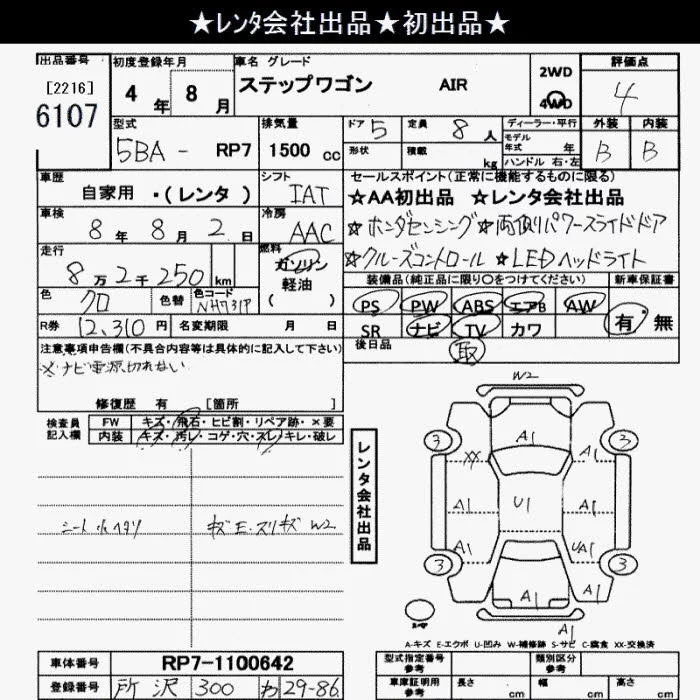 ★レンタ会社出品★初出品★
出品番号 初度登録年月 車名 グレード 評価点
[2216] 4年 8月 ステップワゴン AIR 2WD 4WD 4
6107
型式 排気量 ドア 5 定員 8人 ディーラー・平行 外装 内装
5BA - RP7 1500cc 形状 積載 kg モデル年式 年 B B
ハンドル 右・左
車歴 シフト セールスポイント(正常に機能するものに限る)
自家用 ・(レンタ) IAT ★AA初出品 ★レンタ会社出品
車検 冷房 ☆ホンダセンシング☆両側パワースライドドア
8年 8月 2日 AAC ☆クルーズコントロール ☆LEDヘッドライト
走行 燃料
8万2千250km ガソリン 軽油 ( ) 装備品(純正品に限り○をつけてください) 新車保証書
色 色替 色コード PS PW ABS エアB AW 有・無
クロ NH731P SR ナビ TV カワ
R券 12,310円 名変期限 月 日 後日品 取
注意事項申告欄(不具合内容等は具体的に記入して下さい)
※ナビ電源切れない
修復歴 有 [箇所 ]
検査員記入欄 FW キズ・飛石・ヒビ割・リペア跡・×要
内装 キズ・汚レ・コゲ・穴・スレ・キレ・破レ
シート小ヘタリ キズE.スリキズ W2
レンタ会社出品
W2
3 A1 3
XX A1
A1 U1 A1
A1 UA1
3 A1 3
A1 A1
A1
A-キズ E-エクボ U-凹み W-補修跡 S-サビ C-腐食 XX-交換済
車体番号 RP7-1100642 型式指定番号 参考 類別区分 参考
登録番号 所沢 300 わ 29-86 車庫証明用 参考 長さ cm 幅 cm 高さ cm